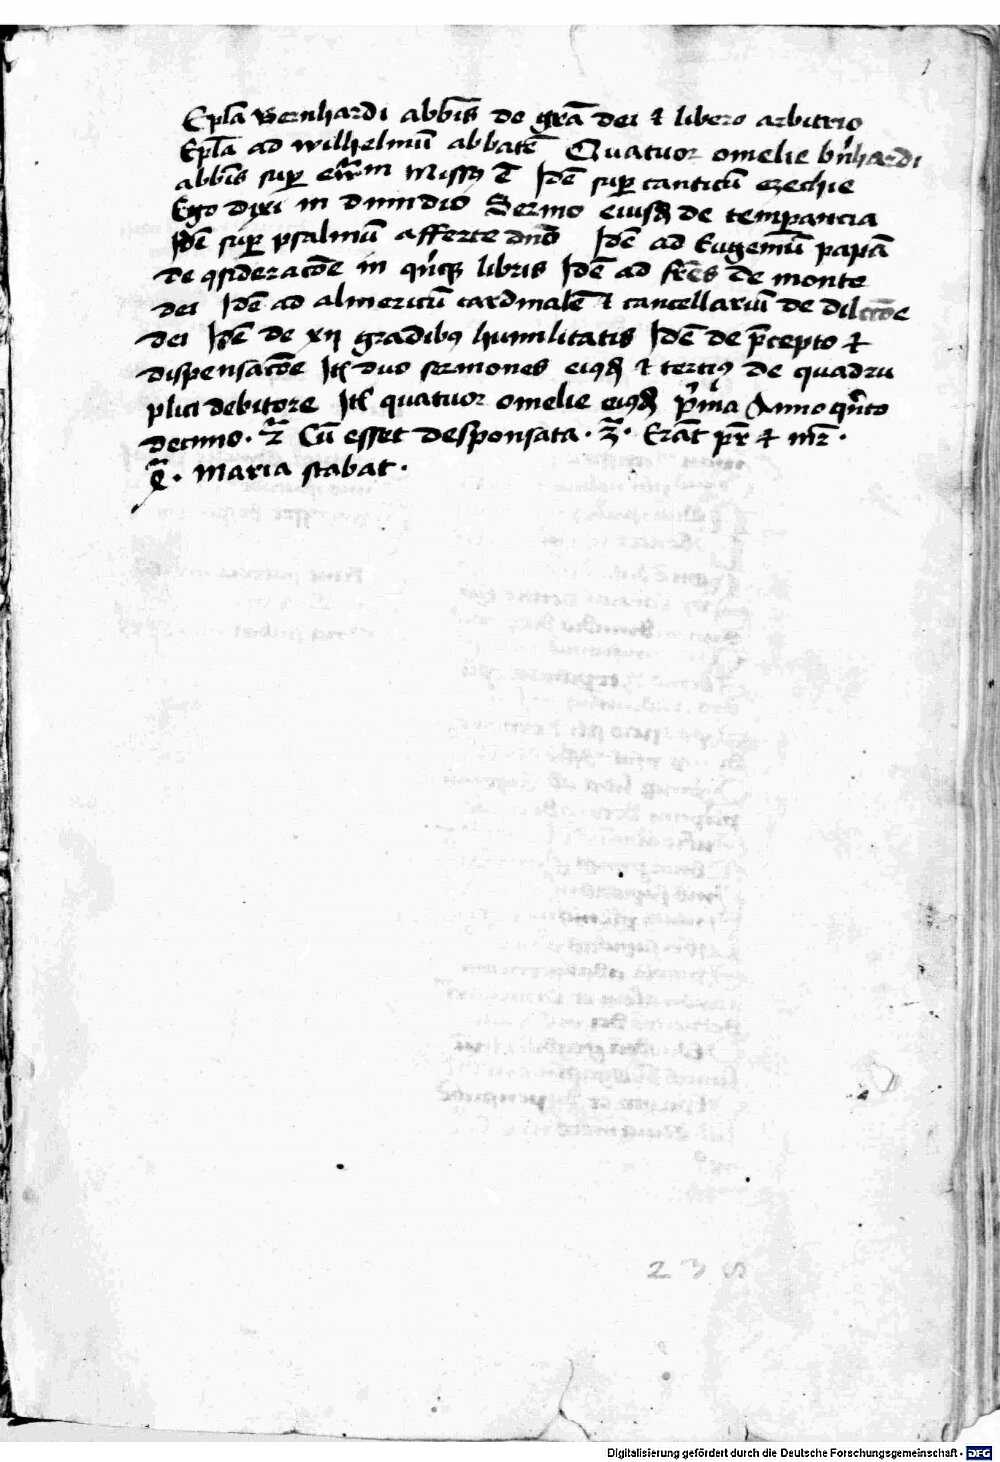 1
Ep̄la Bernhardi abb̄is de gr̄a dei ⁊ libero arbitrio
Ep̄la ad wilhelmū abbatē Quatuor omelie bn̄hardi
abb̄is sup̄ ew̄m Missꝰ ē Idē sup̄ canticū ezechie
Ego dixi in dimidio Sermo eiusd̄ de temp̄ancia
Idē sup̄ psalmū afferte dn̄o Idē ad Eugeniū papā
de ꝯsideracōe in qn̄qꝫ libris Idē ad fr̄es de monte
dei Idē ad almericū cardinalē ⁊ cancellariū de dilc̄tōe
dei Idē de xij gradibꝰ humilitatis Idē de p̄cepto ⁊
dispensacōe Itē duo sermones eiꝰd̄ ⁊ terciꝰ de quadru
plici debitore Itē quatuor omelie eiꝰd̄ p̄ma Anno qn̄to
decimo · 2ᵃ Cū esset desponsata · 3ᵃ · Erāt pr̄ ⁊ mr̄ ·
4ᵃ · Maria stabat ·
235
Digitalisierung gefördert durch die Deutsche Forschungsgemeinschaft - DFG